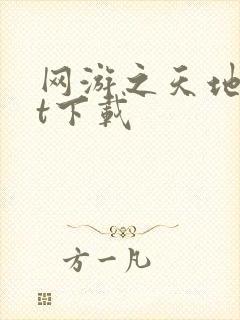 网游之天地
t下载
方一凡